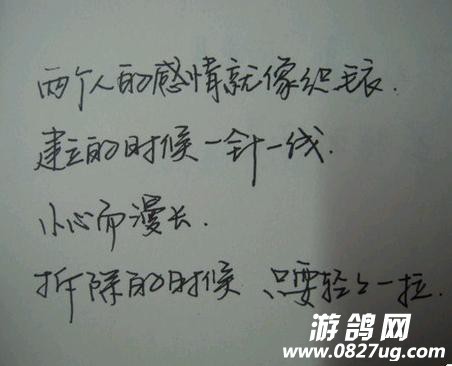 两个人的感情就像织毛衣.
建立的时候一针一线.
小心而漫长.
拆除的时候 只要轻轻一拉.
游鸽网
www.0827ug.com